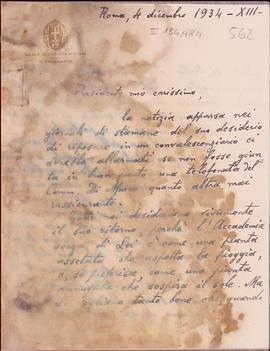 Roma, 4 dicembre 1934 - XIII -
II 154,484
562
Presidente mio carissimo,
la notizia apparsa nei
giornali di stamane del suo desiderio
di riposare in un convalescenziario ci
avrebbe allarmati se non fosse giun
ta in buon punto una telefonata del
Comm. Di Marzo quanto altra mai
rassicurante.
Tutti noi desideriamo vivamente
il suo ritorno, perché l'Accademia
senza di Lei è come una pianta
assetata che aspetta la pioggia,
o, se preferisce, come una pianta
che sospira il sole. Ma
vogliamo tanto bene che quando